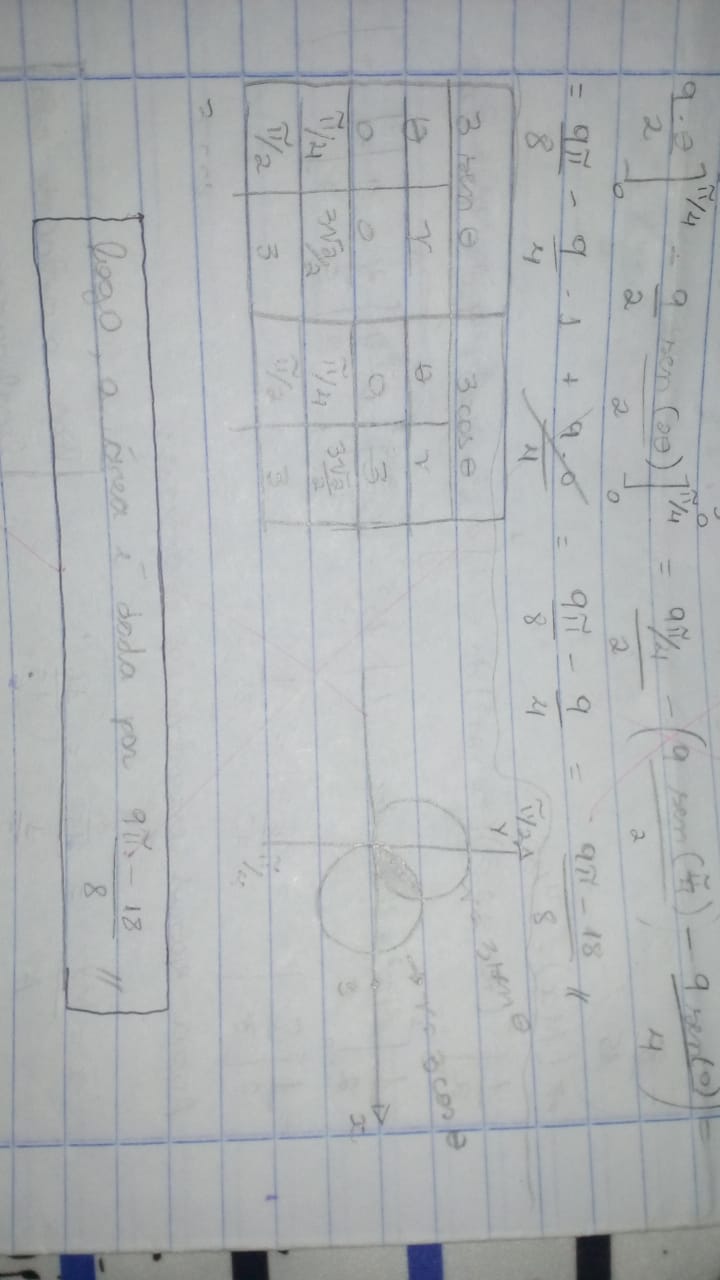 9·θ/2 ]₀^π/4 - 9/2 sen(2θ)/2 ]₀^π/4 = 9π/4/2 - (9 sen(π/2)/4 - 9 sen(0)/4) =
= 9π/8 - 9/4 · 1 + 9·0/4 = 9π/8 - 9/4 = 9π - 18/8 //
3 sen θ 3 cos θ
θ r θ r
0 0 0 3
π/4 3√2/2 π/4 3√2/2
π/2 3 π/2 3
π/2 Y
3 sen θ
r = 3 cos θ
3 x
Logo, a área é dada por 9π - 18/8 //